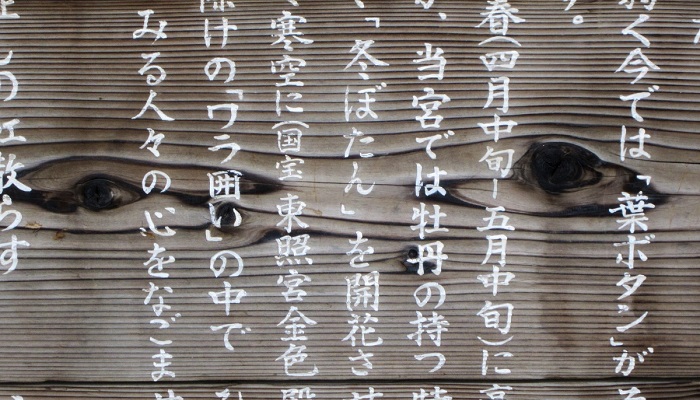 弱く今では「葉ボタン」がそ
す。
春(四月中旬ー五月中旬)に高
が、当宮では牡丹の持つ特
、「冬ぼたん」を開花させ
寒空に(国宝 東照宮金色殿
除けの「ワラ囲い」の中で ひ
みる人々の心をなごませ
散らす